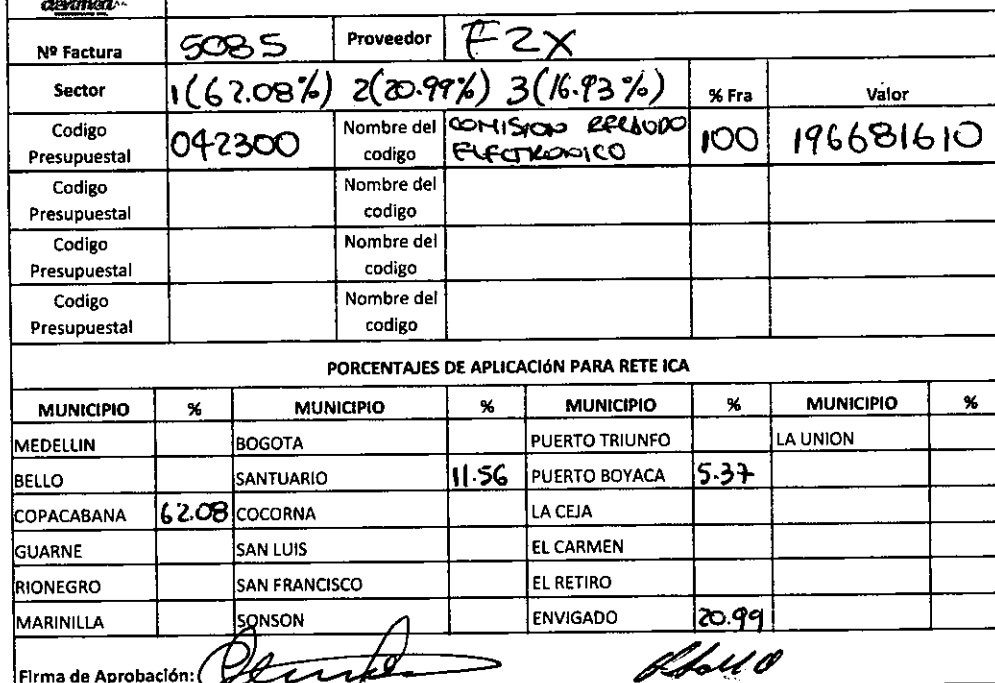 devimed
Nº Factura 5085 Proveedor F2X
Sector 1(62.08%) 2(20.99%) 3(16.93%) % Fra Valor
Codigo Presupuestal 042300 Nombre del codigo COMISION RECAUDO ELECTRONICO 100 196681610
Codigo Presupuestal Nombre del codigo
Codigo Presupuestal Nombre del codigo
Codigo Presupuestal Nombre del codigo
PORCENTAJES DE APLICACIóN PARA RETE ICA
MUNICIPIO % MUNICIPIO % MUNICIPIO % MUNICIPIO %
MEDELLIN BOGOTA PUERTO TRIUNFO LA UNION
BELLO SANTUARIO 11.56 PUERTO BOYACA 5.37
COPACABANA 62.08 COCORNA LA CEJA
GUARNE SAN LUIS EL CARMEN
RIONEGRO SAN FRANCISCO EL RETIRO
MARINILLA SONSON ENVIGADO 20.99
Firma de Aprobación: